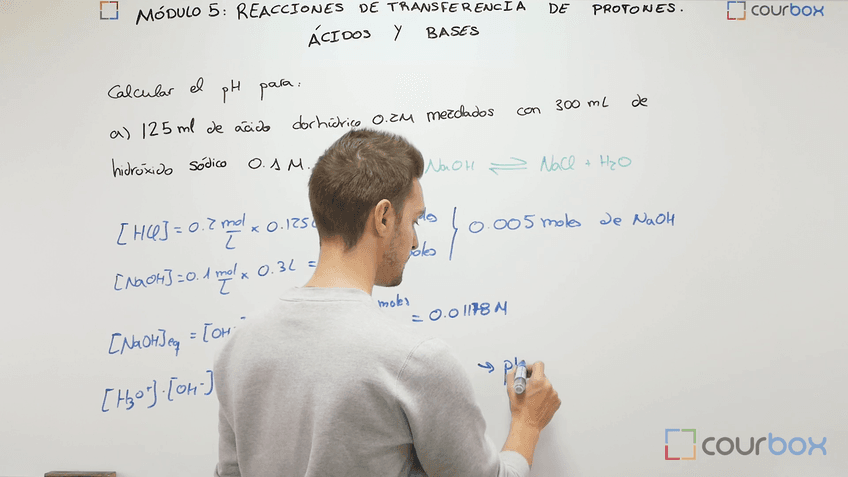 MÓDULO 5: REACCIONES DE TRANSFERENCIA DE PROTONES.
courbox
ÁCIDOS Y BASES
Calcular el pH para:
a) 125 ml de ácido clorhídrico 0.2M mezclados con 300 mL de
hidróxido sódico 0.1 M.
NaOH ⇌ NaCl + H2O
[HCl] = 0.2 mol/L × 0.125
0.005 moles de NaOH
[NaOH] = 0.1 mol/L × 0.3L =
moles
[NaOH]eq = [OH-
= 0.01178 M
[H3O+]·[OH-]
→ pH
courbox